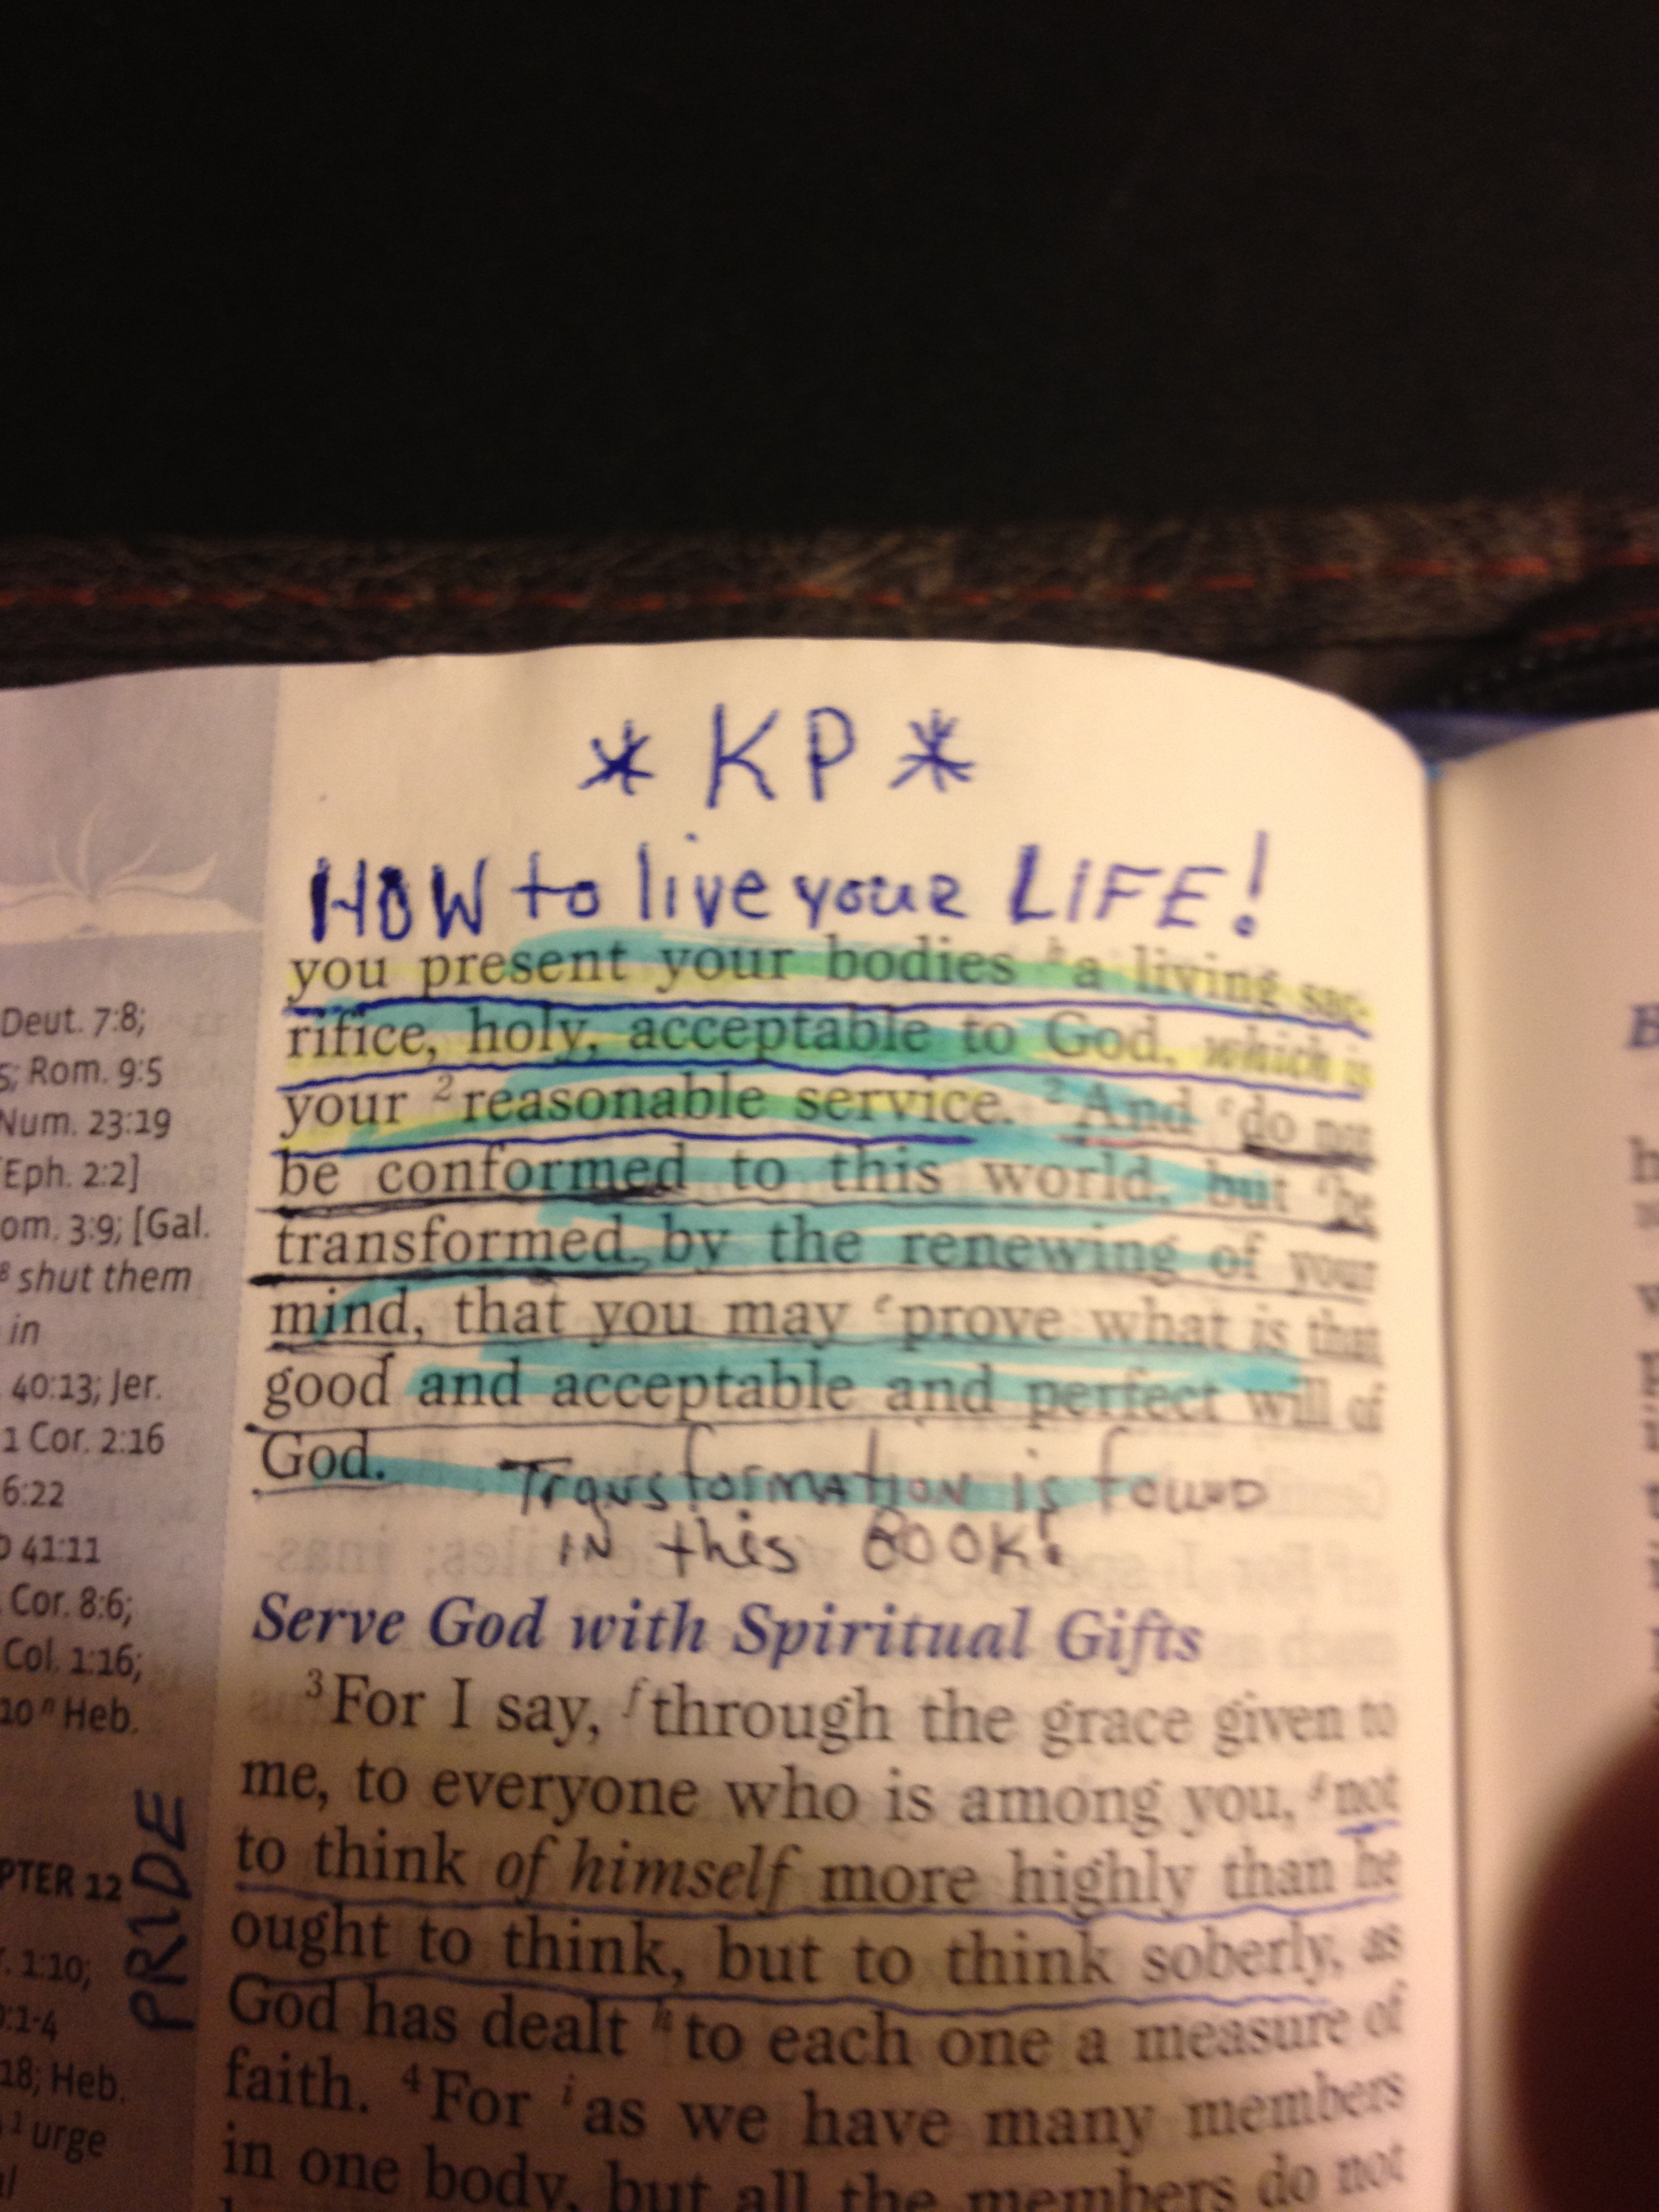 * KP *
HOW to live your LIFE!
you present your bodies b a living sac-
rifice, holy, acceptable to God, which is
your 2 reasonable service. 2 And c do not
be conformed to this world, but d be
transformed by the renewing of your
mind, that you may e prove what is that
good and acceptable and perfect will of
God.
Transformation is found
in this BOOK!
Serve God with Spiritual Gifts
3 For I say, f through the grace given to
me, to everyone who is among you, g not
to think of himself more highly than he
ought to think, but to think soberly, as
God has dealt h to each one a measure of
faith. 4 For i as we have many members
in one body, but all the members do not
Deut. 7:8;
5; Rom. 9:5
Num. 23:19
[Eph. 2:2]
om. 3:9; [Gal.
8 shut them
in
40:13; Jer.
1 Cor. 2:16
6:22
41:11
Cor. 8:6;
Col. 1:16;
10 n Heb.
PRIDE
PTER 12
1:10;
:1-4
18; Heb.
1 urge
B